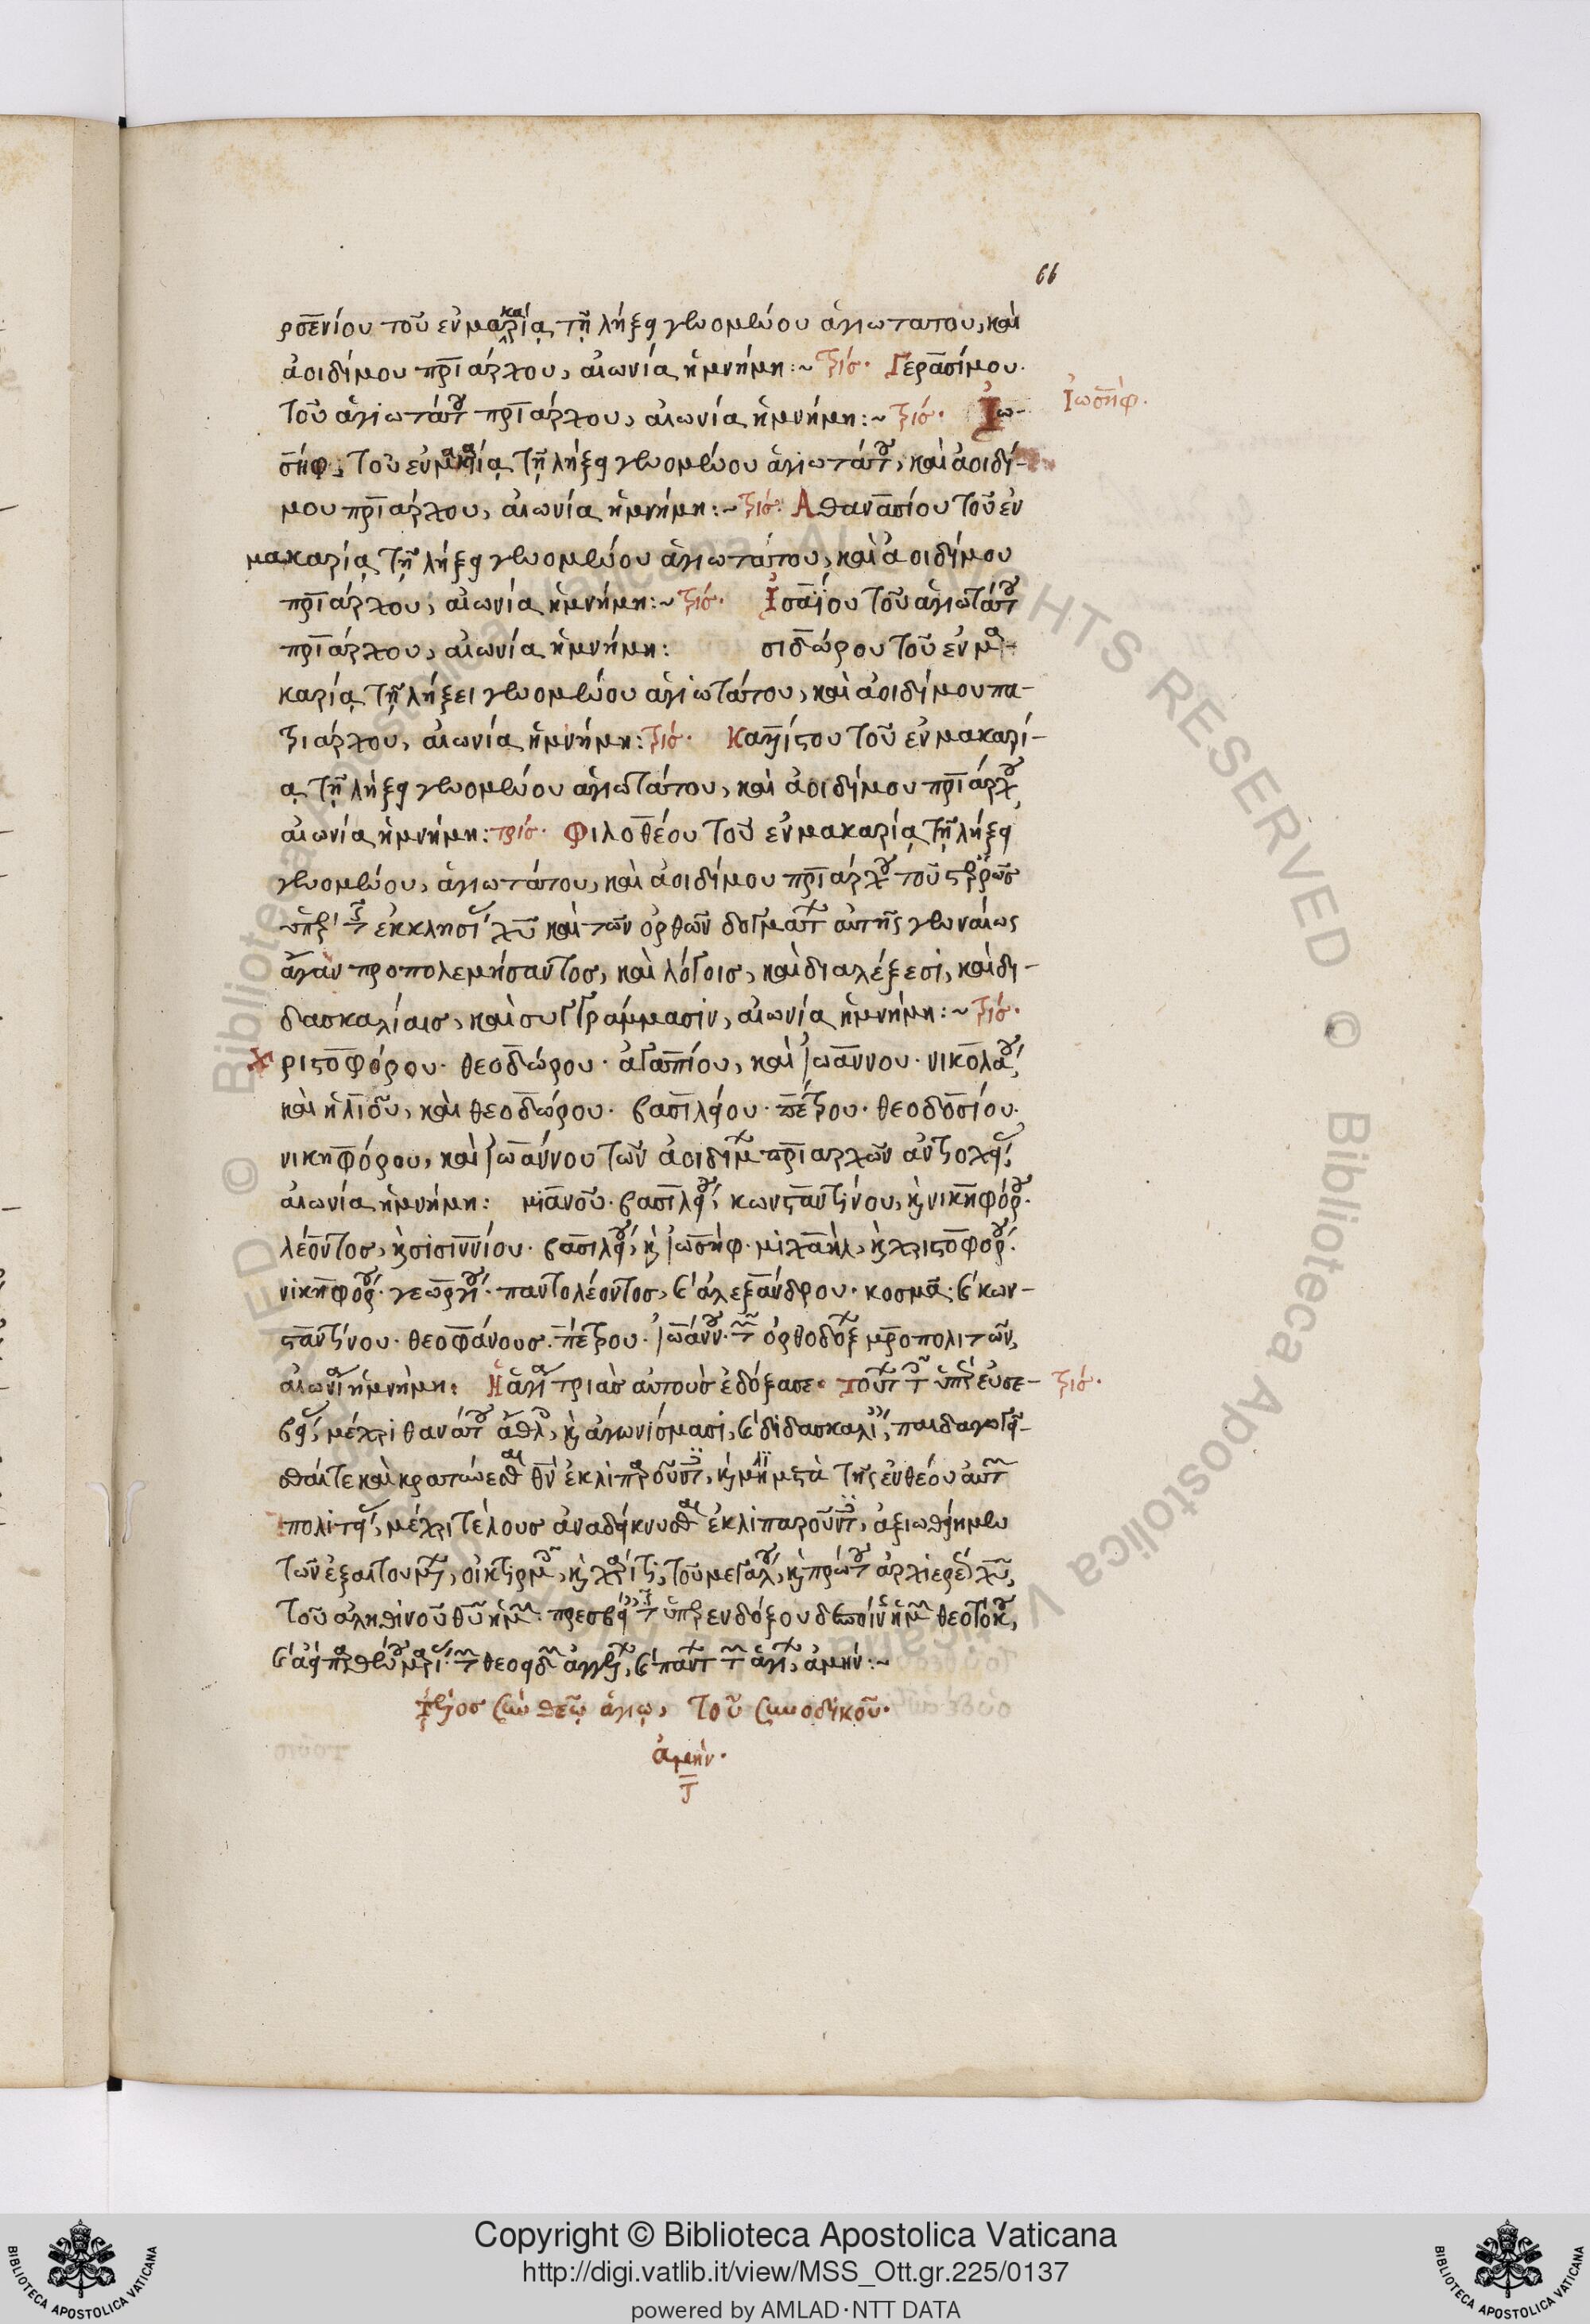 66
ρσενίου τοῦ ἐν μακαρίᾳ τῇ λήξει γενομένου ἁγιωτατου, καὶ
ἀοιδίμου πριάρχου, αἰωνία ἡ μνήμη :~ τρίς· Γερασίμου.
τοῦ ἁγιωτάτου πριάρχου, αἰωνία ἡ μνήμη :~ τρίς· Ἰω-
Ἰωσήφ.
σήφ, τοῦ ἐν μακαρίᾳ τῇ λήξει γενομένου ἁγιωτάτου, καὶ ἀοιδί-
μου πριάρχου, αἰωνία ἡ μνήμη :~ τρίς· Ἀθανασίου τοῦ ἐν
μακαρίᾳ τῇ λήξει γενομένου ἁγιωτάτου, καὶ ἀοιδίμου
πριάρχου, αἰωνία ἡ μνήμη :~ τρίς· Ἰσαΐου τοῦ ἁγιωτάτου
πριάρχου, αἰωνία ἡ μνήμη : σιδώρου τοῦ ἐν μα-
καρίᾳ τῇ λήξει γενομένου ἁγιωτάτου, καὶ ἀοιδίμου πα-
τριάρχου, αἰωνία ἡ μνήμη : τρίς· Καλλίστου τοῦ ἐν μακαρί-
ᾳ τῇ λήξει γενομένου ἁγιωτάτου, καὶ ἀοιδίμου πριάρχου,
αἰωνία ἡ μνήμη : τρίς· Φιλοθέου τοῦ ἐν μακαρίᾳ τῇ λήξει
γενομένου, ἁγιωτάτου, καὶ ἀοιδίμου πριάρχου τοῦ στερρῶς
ὑπὲρ τῆς ἐκκλησίας χυ καὶ τῶν ὀρθῶν δογμάτων αὐτῆς γενναίως
ἄγαν προπολεμήσαντος, καὶ λόγοις, καὶ διαλέξεσι, καὶ δι-
δασκαλίαις, καὶ συγγράμμασιν, αἰωνία ἡ μνήμη :~ τρίς·
Χριστοφόρου· θεοδώρου· ἀγαπίου, καὶ ἰωάννου· νικολάου,
καὶ ἠλιοῦ, καὶ θεοδώρου· βασιλείου· πέτρου· θεοδοσίου·
νικηφόρου, καὶ ἰωάννου τῶν ἀοιδίμων πριαρχῶν ἀντολῆς,
αἰωνία ἡ μνήμη : μιανοῦ· βασιλείου, κωνσταντίνου, καὶ νικηφόρου·
λέοντος, καὶ σισιννίου· βασιλείου, καὶ ἰωσήφ· μιχαήλ, καὶ χριστοφόρου·
νικηφόρου· γεωργίου· παντολέοντος, καὶ ἀλεξάνδρου· κοσμᾶ· καὶ κων-
σταντίνου· θεοφάνους· πέτρου· ἰωάννου· τῶν ὀρθοδόξων μροπολιτῶν,
αἰωνία ἡ μνήμη : Ἡ ἁγία τριὰς αὐτοὺς ἐδόξασε· τούτων τοῖς ὑπὲρ εὐσε- τρίς·
βείας, μέχρι θανάτου ἄθλοις, καὶ ἀγωνίσμασι, καὶ διδασκαλίαις, παιδαγωγεῖ-
σθαί τε καὶ κρατύνεσθαι θν ἐκλιπαροῦντες, καὶ μιμητὰς τῆς ἐνθέου αὐτῶν
πολιτείας, μέχρι τέλους ἀναδείκνυσθαι ἐκλιπαροῦντες, ἀξιωθείημεν
τῶν ἐξαιτουμένων, οἰκτιρμοῖς, καὶ χάριτι, τοῦ μεγάλου, καὶ πρώτου ἀρχιερέως χυ,
τοῦ ἀληθινοῦ θυ ἡμῶν· πρεσβείαις τῆς ὑπερενδόξου δεσποίνης ἡμῶν θεοτόκου,
καὶ ἀειπαρθένου μαρίας· τῶν θεοειδῶν ἀγγέλων, καὶ πάντων τῶν ἁγίων, ἀμήν :~
τέλος σὺν θεῷ ἁγίῳ, τοῦ συνοδικοῦ·
ἀμήν·
Copyright © Biblioteca Apostolica Vaticana
http://digi.vatlib.it/view/MSS_Ott.gr.225/0137
powered by AMLAD·NTT DATA
BIBLIOTECA APOSTOLICA VATICANA
BIBLIOTECA APOSTOLICA VATICANA